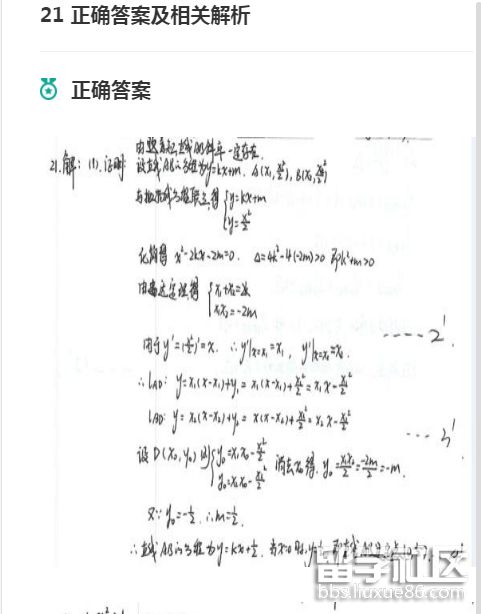 21 正确答案及相关解析
正确答案
由题意知直线AB的斜率一定存在,
21.解: (1).证明: 设直线AB的方程为y=kx+m, A(x₁, x₁²/2), B(x₂, x₂²/2)
与抛物线方程联立,得 { y=kx+m
y=x²/2
化简得 x²-2kx-2m=0. Δ=4k²-4(-2m)>0 即k²+m>0
由韦达定理得 { x₁+x₂=2k
x₁x₂=-2m
由于y'=(x²/2)'=x. ∴ y'|x=x₁=x₁, y'|x=x₂=x₂
---- 2'
∴ lAD: y=x₁(x-x₁)+y₁=x₁(x-x₁)+x₁²/2=x₁x-x₁²/2
lBD: y=x₂(x-x₂)+y₂=x(x-x₂)+x₂²/2=x₂x-x₂²/2
--- 3'
设D(x₀,y₀) 则 { y₀=x₁x₀-x₁²/2
y₀=x₂x₀-x₂²/2 消去x₀得, y₀=x₁x₂/2=-2m/2=-m.
又∵y₀=-½, ∴m=½.
∴直线AB的方程为y=kx+½, 当x=0时,y=½
留学社区
bbs.liuxue86.com